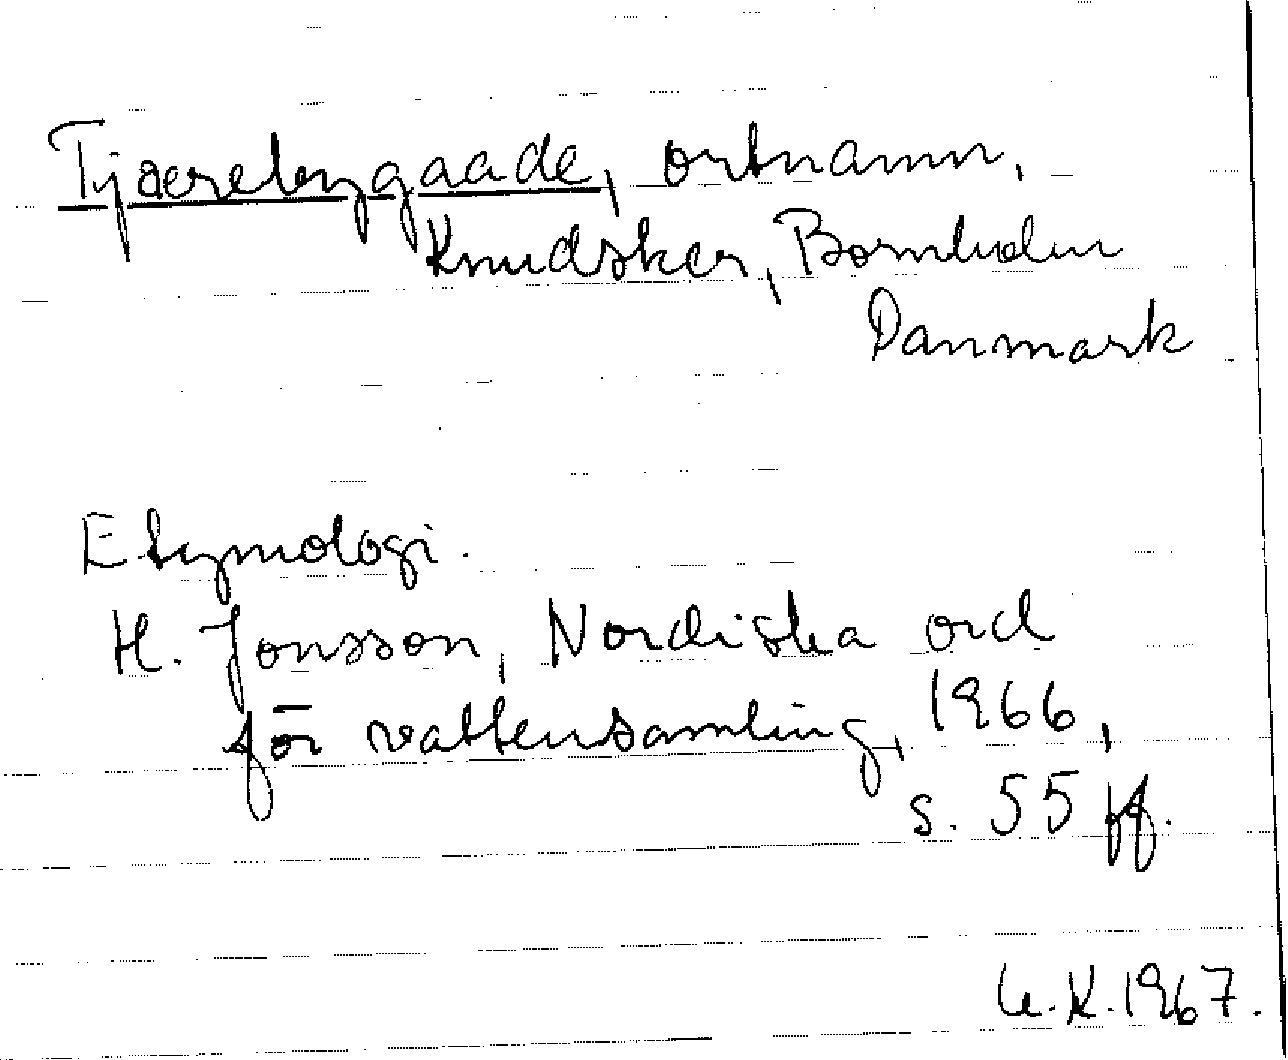 Tjaerebygaade, ortnamn,
Knudsker, Bornholm
Danmark
Etymologi.
H. Jonsson, Nordiska ord
för vattensamling, 1966,
s. 55 ff.
U.K. 1967.